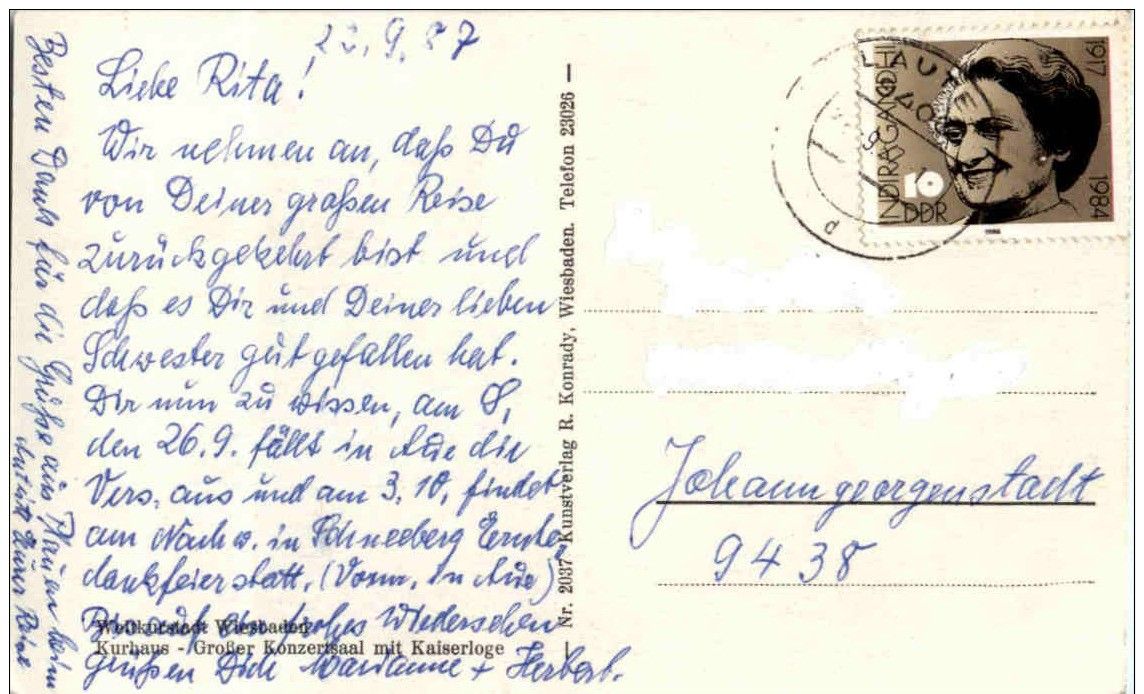 22.9.87
Liebe Rita!
Wir nehmen an, daß Du
von Deiner großen Reise
zurückgekehrt bist und
daß es Dir und Deiner lieben
Schwester gut gefallen hat.
Dir nun zu wissen, am S,
den 26.9. fällt in Aue die
Vers. aus und am 3.10. findet
am Nachm. in Schneeberg Ernte-
dankfeier statt. (Vorm. in Aue)
Bis auf ein frohes Wiedersehen
grüßen Dich Marianne + Herbert.
Besten Dank für die Grüße aus Plauen beim
Antritt Eurer Reise
Weltkurstadt Wiesbaden
Kurhaus - Großer Konzertsaal mit Kaiserloge
Nr. 2037 Kunstverlag R. Konrady, Wiesbaden. Telefon 23026
INDIRA GANDHI
1917
1984
10
DDR
1986
LAUTE
9400
Johanngeorgenstadt
9438